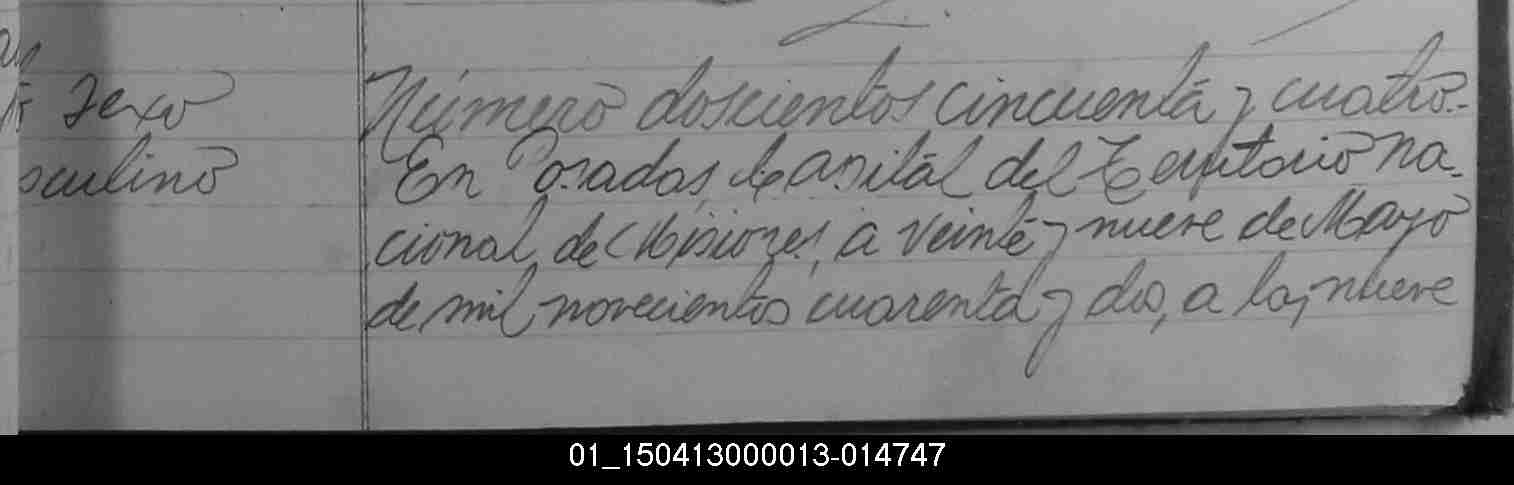 Sexo
sculino
Número doscientos cincuenta y cuatro.-
En Posadas, Capital del Territorio Na-
cional de Misiones, a veinte y nueve de Mayo
de mil novecientos cuarenta y dos, a las nueve
01_150413000013-014747